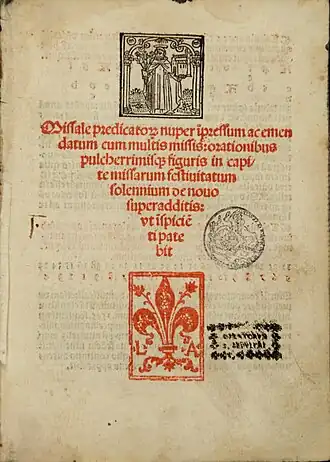 Missale predicatoꝝ nuper īpressum ac emen
datum cum multis missis: orationibus
pulcherrimisqꝫ figuris in capi-
te missarum festiuitatum
solennium de nouo
superadditis:
vt īspiciē
ti pate
bit
L A